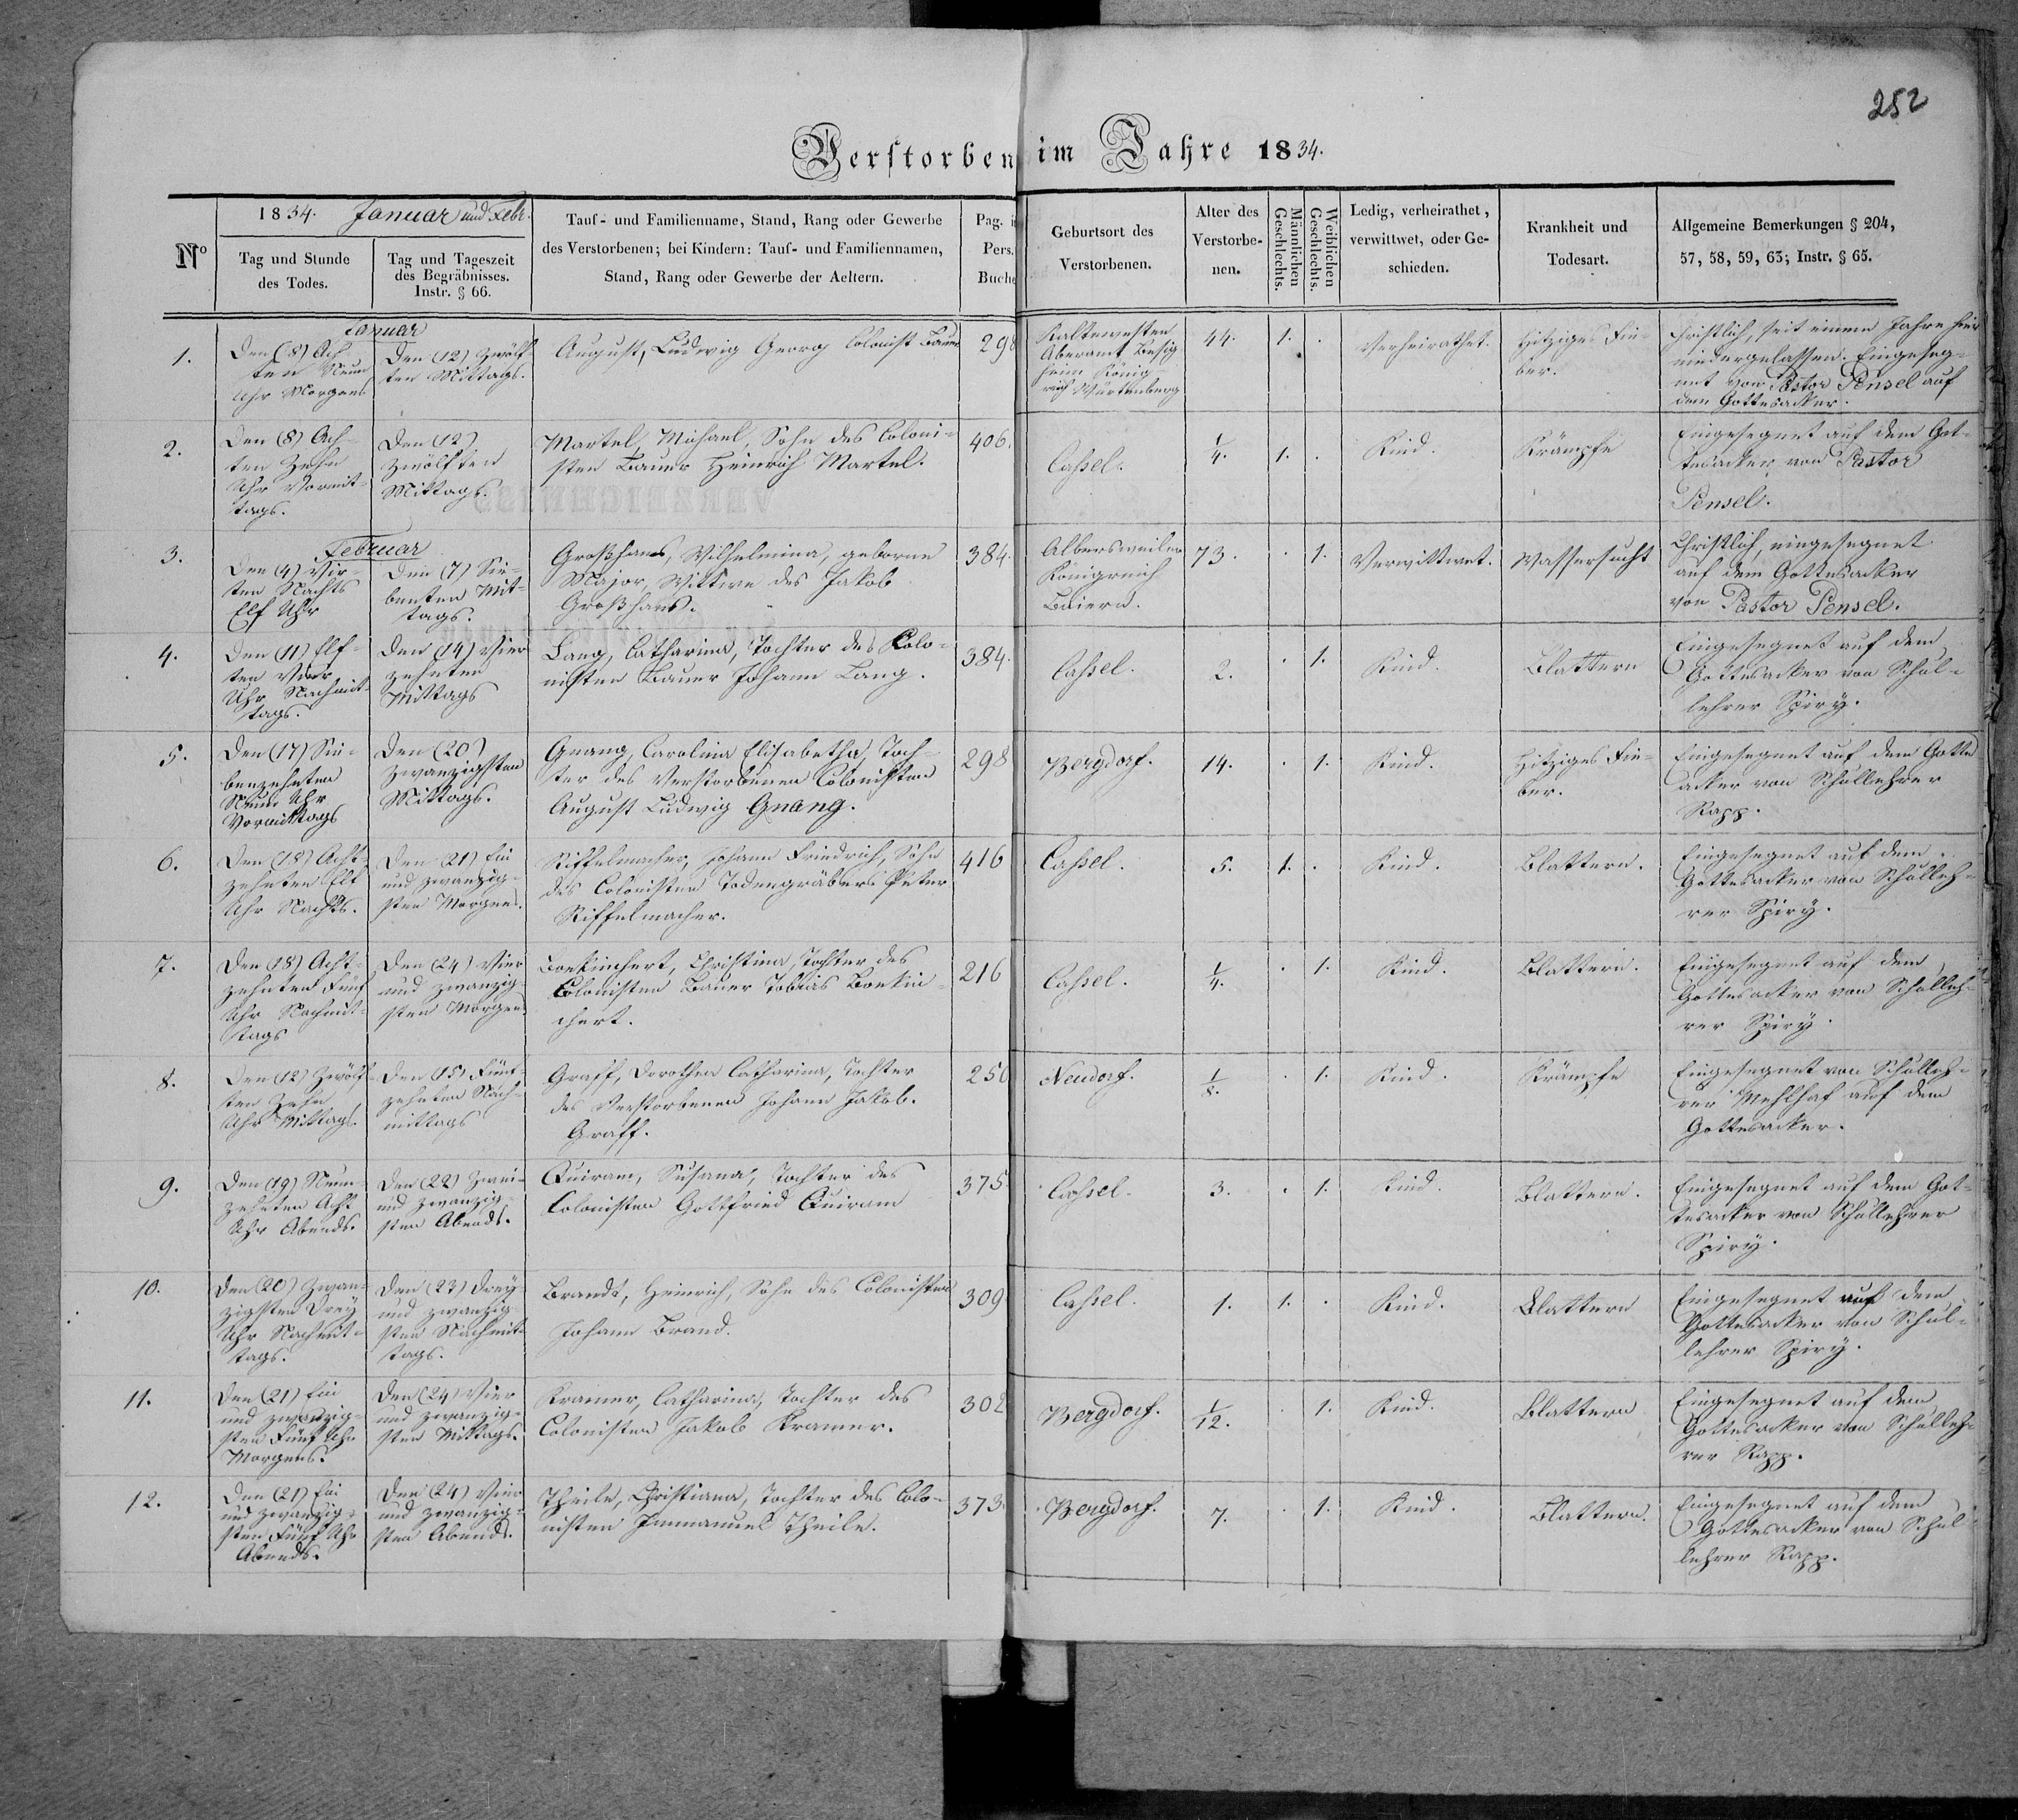 252
Verstorben im Jahre 1834.
1834. Januar und Febr.
No
Tag und Stunde
des Todes.
Tag und Tageszeit
des Begräbnisses.
Instr. § 66.
Tauf- und Familienname, Stand, Rang oder Gewerbe
des Verstorbenen; bei Kindern: Tauf- und Familiennamen,
Stand, Rang oder Gewerbe der Aeltern.
Pag. i
Pers.
Buche
Geburtsort des
Verstorbenen.
Alter des
Verstorbe-
nen.
Männlichen
Geschlechts.
Weiblichen
Geschlechts.
Ledig, verheirathet,
verwittwet, oder Ge-
schieden.
Krankheit und
Todesart.
Allgemeine Bemerkungen § 204,
57, 58, 59, 63; Instr. § 65.
Januar
1.
Den (8) Ach-
ten Neun
Uhr Morgens
Den (12) Zwölf-
ten Mittags.
August, Ludwig Georg Colonist Bauer
298
Kaltewesten
Oberamt Besig
heim König-
reich Würtenberg
44.
1.
.
Verheirathet.
Hitziges Fie-
ber.
Christlich, seit einem Jahre hier
niedergelassen. Eingeseg-
net von Pastor Pensel auf
dem Gottesacker.
2.
Den (8) Ach-
ten Zehn
Uhr Vormit-
tags.
Den (12)
Zwölften
Mittags.
Martel, Michael, Sohn des Coloni-
sten Bauer Heinrich Martel.
406.
Cassel.
1/4.
1.
.
Kind.
Krämpfe
Eingesegnet auf dem Got-
tesacker von Pastor
Pensel.
Februar
3.
Den (4) Vier-
ten Nachts
Elf Uhr
Den (7) Sie-
benten Mit-
tags.
Großhans, Wilhelmina, geborne
Major, Wittwe des Jakob
Großhans.
384.
Albersweiler
Königreich
Baiern.
73.
.
1.
Verwittwet.
Wassersucht
Christlich, eingesegnet
auf dem Gottesacker
von Pastor Pensel.
4.
Den (11) Elf-
ten Vier
Uhr Nachmit-
tags.
Den (14) Vier
zehnten
Mittags
Lang, Catharina, Tochter des Colo-
nisten Bauer Johann Lang.
384.
Cassel.
2.
.
1.
Kind.
Blattern
Eingesegnet auf dem
Gottesacker von Schul-
lehrer Spiry.
5.
Den (17) Sie-
benzehnten
Neun Uhr
Vormittags
Den (20)
Zwanzigsten
Mittags.
Gnang, Carolina Elisabetha, Toch-
ter des Verstorbenen Colonisten
August Ludwig Gnang.
298
Bergdorf.
14.
.
1.
Kind.
Hitziges Fie-
ber.
Eingesegnet auf dem Gottes
acker von Schullehrer
Rapp.
6.
Den (18) Acht-
zehnten Elf
Uhr Nachts.
Den (21) Ein
und zwanzig-
sten Morgens.
Riffelmacher, Johann Friedrich, Sohn
des Colonisten Todengräbers Peter
Riffelmacher.
416
Cassel.
5.
1.
.
Kind.
Blattern.
Eingesegnet auf dem
Gottesacker von Schulleh-
rer Spiry.
7.
Den (18) Acht-
zehnten Fünf
Uhr Nachmit-
tags
Den (24) Vier
und zwanzig-
sten Morgen
Christina, Tochter des
Colonisten Bauer Tobias
chert.
216
Cassel.
1/4.
.
1.
Kind.
Blattern.
Eingesegnet auf dem
Gottesacker von Schulleh-
rer Spiry.
8.
Den (12) Zwölf-
ten Zehn
Uhr Mittags.
Den (15) Fünf-
zehnten Nach-
mittags
Graff, Dorothea Catharina, Tochter
des Verstorbenen Johann Jakob.
Graff.
250
Neudorf.
1/8.
.
1.
Kind.
Krämpfe
Eingesegnet von Schulleh-
rer Mehlhaf auf dem
Gottesacker.
9.
Den (19) Neun-
zehnten Acht
Uhr Abends.
Den (22) Zwei-
und zwanzig-
sten Abends.
Quiram, Susana, Tochter des
Colonisten Gottfried Quiram
375
Cassel.
3.
.
1.
Kind.
Blattern.
Eingesegnet auf dem Got-
tesacker von Schullehrer
Spiry.
10.
Den (20) Zwan-
zigsten Drey
Uhr Nachmit-
tags.
Den (23) Drey-
und zwanzig-
sten Nachmit-
tags.
Brandt, Heinrich, Sohn des Colonisten
Johann Brand.
309
Cassel.
1.
1.
.
Kind.
Blattern
Eingesegnet auf dem
Gottesacker von Schul-
lehrer Spiry.
11.
Den (21) Ein
und zwanzig-
sten Fünf Uhr
Morgens.
Den (24) Vier
und zwanzig-
sten Mittags.
Kramer, Catharina, Tochter des
Colonisten Jakob Kramer.
302
Bergdorf.
1/12.
.
1.
Kind.
Blattern
Eingesegnet auf dem
Gottesacker von Schulleh-
rer Rapp.
12.
Den (21) Ein
und zwanzig-
sten Fünf Uhr
Abends.
Den (24) Vier
und zwanzig-
sten Abends.
Theile, Christiana, Tochter des Colo-
nisten Immanuel Theile.
373.
Bergdorf.
7.
.
1.
Kind.
Blattern.
Eingesegnet auf dem
Gottesacker von Schul-
lehrer Rapp.